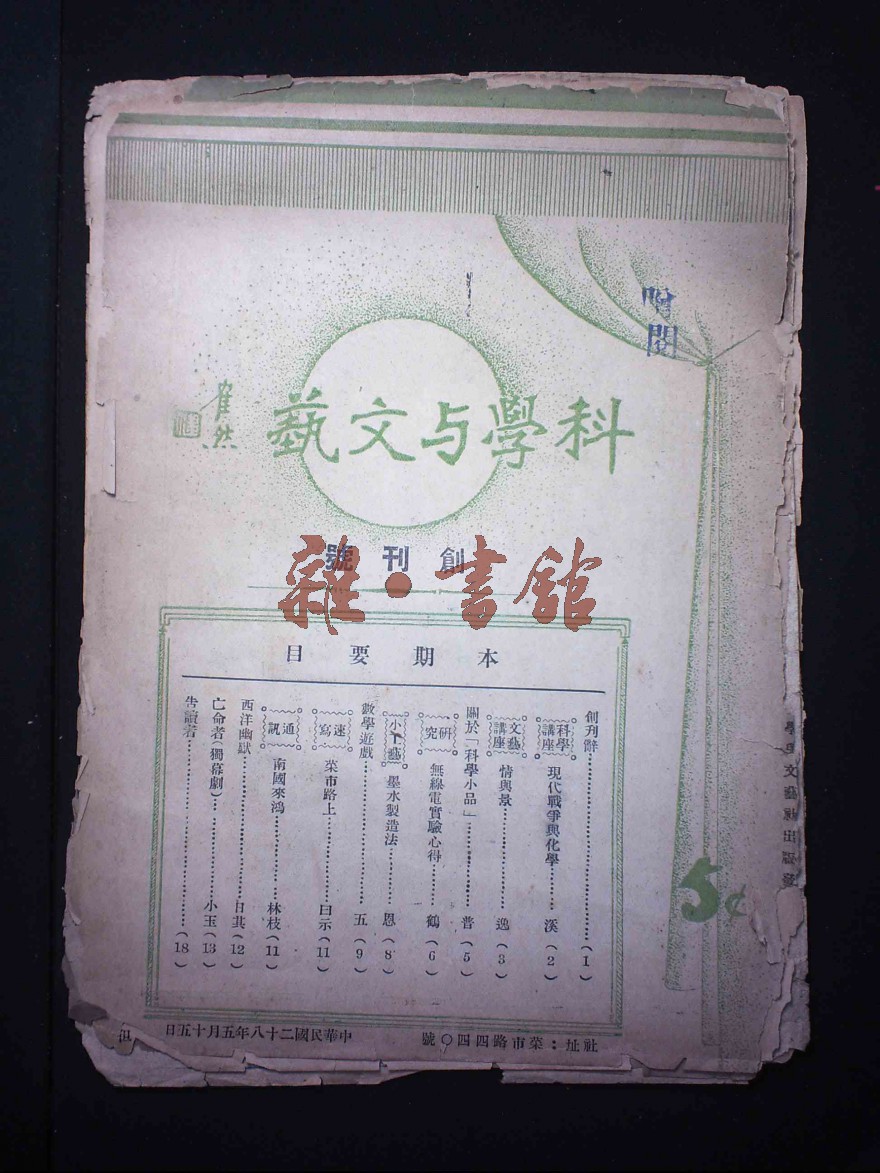 贈閱
科學与文藝
崔然
創刊號
雜·書館
本期要目
創刊辭(1)
科學講座 現代戰爭與化學 溪(2)
文藝講座 情與景 逸(3)
關於「科學小品」 普(5)
研究 無線電實驗心得 鶴(6)
小工藝 墨水製造法 恩(8)
數學遊戲 五(9)
速寫 菜市路上 曰示(11)
通訊 南國來鴻 林枝(11)
西洋幽默 日其(12)
亡命者(獨幕劇) 小玉(13)
告讀者(18)
5¢
社址:菜市路四四〇號
中華民國二十八年五月十五日
文藝社出版